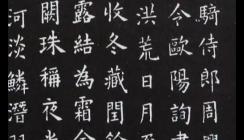 騎侍郎周興
令歐陽詢書
洪荒日月盈
收冬藏閏餘
露結為霜金
闕珠稱夜光
河淡鱗潛羽